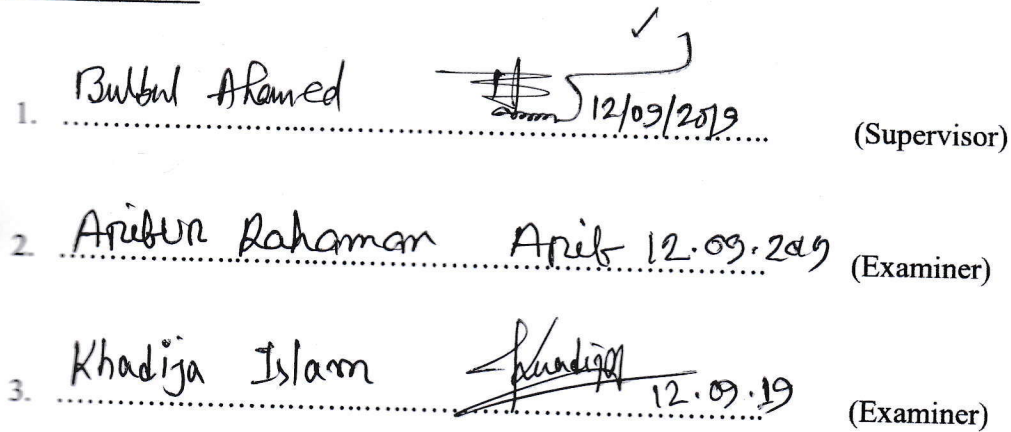 1. Bulbul Ahamed 12/09/2019 (Supervisor)
2. Aribur Rahaman Arib 12.09.2019 (Examiner)
3. Khadija Islam Khadija 12.09.19 (Examiner)